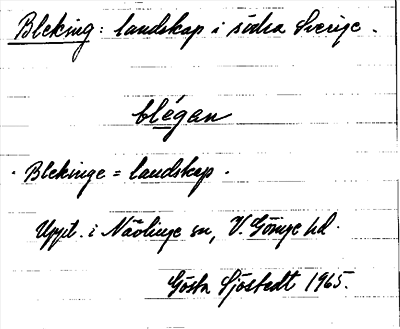 Bleking: landskap i södra Sverige.
blégan
Blekinge = landskap.
Uppt. i Nävlinge sn, V. Göinge hd.
Gösta Sjöstedt 1965.